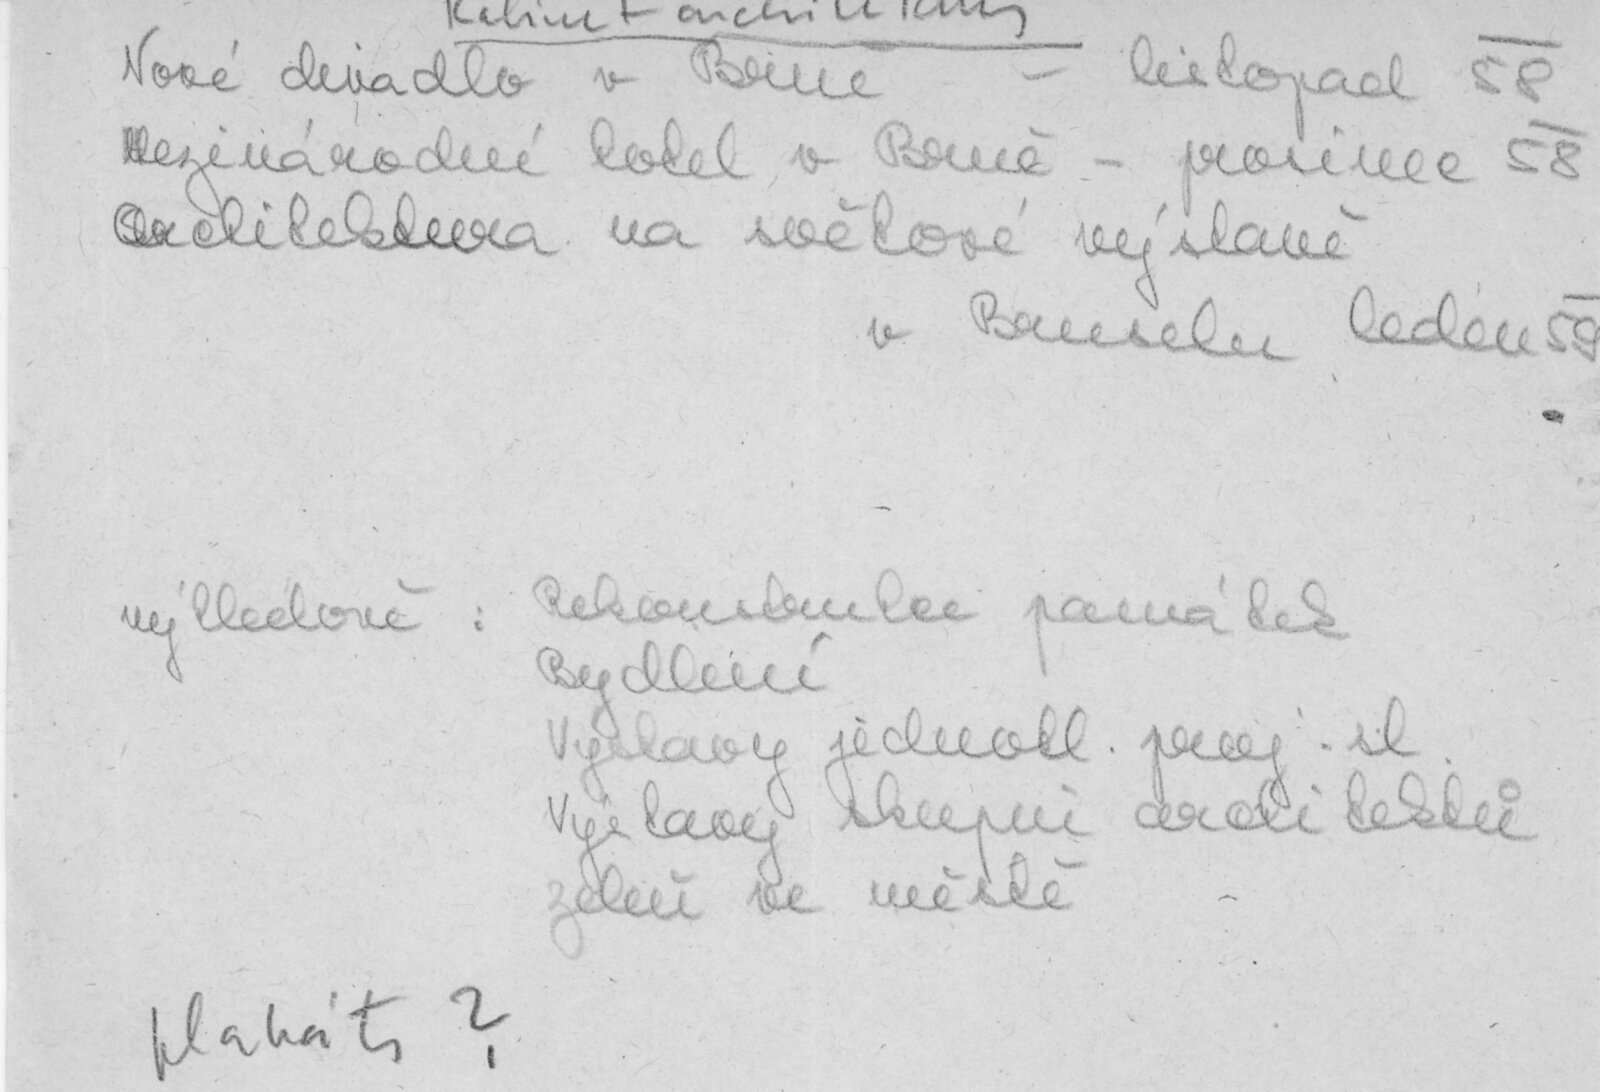 Kabinet architektury
Nové divadlo v Brně – listopad 58
Mezinárodní hotel v Brně – prosinec 58
Architektura na světové výstavě
v Bruselu leden 59
výhledově : Rekonstrukce památek
Bydlení
Výstavy jednotl. proj. st.
Výstavy skupin architektů
zeleň ve městě
plakáty ?